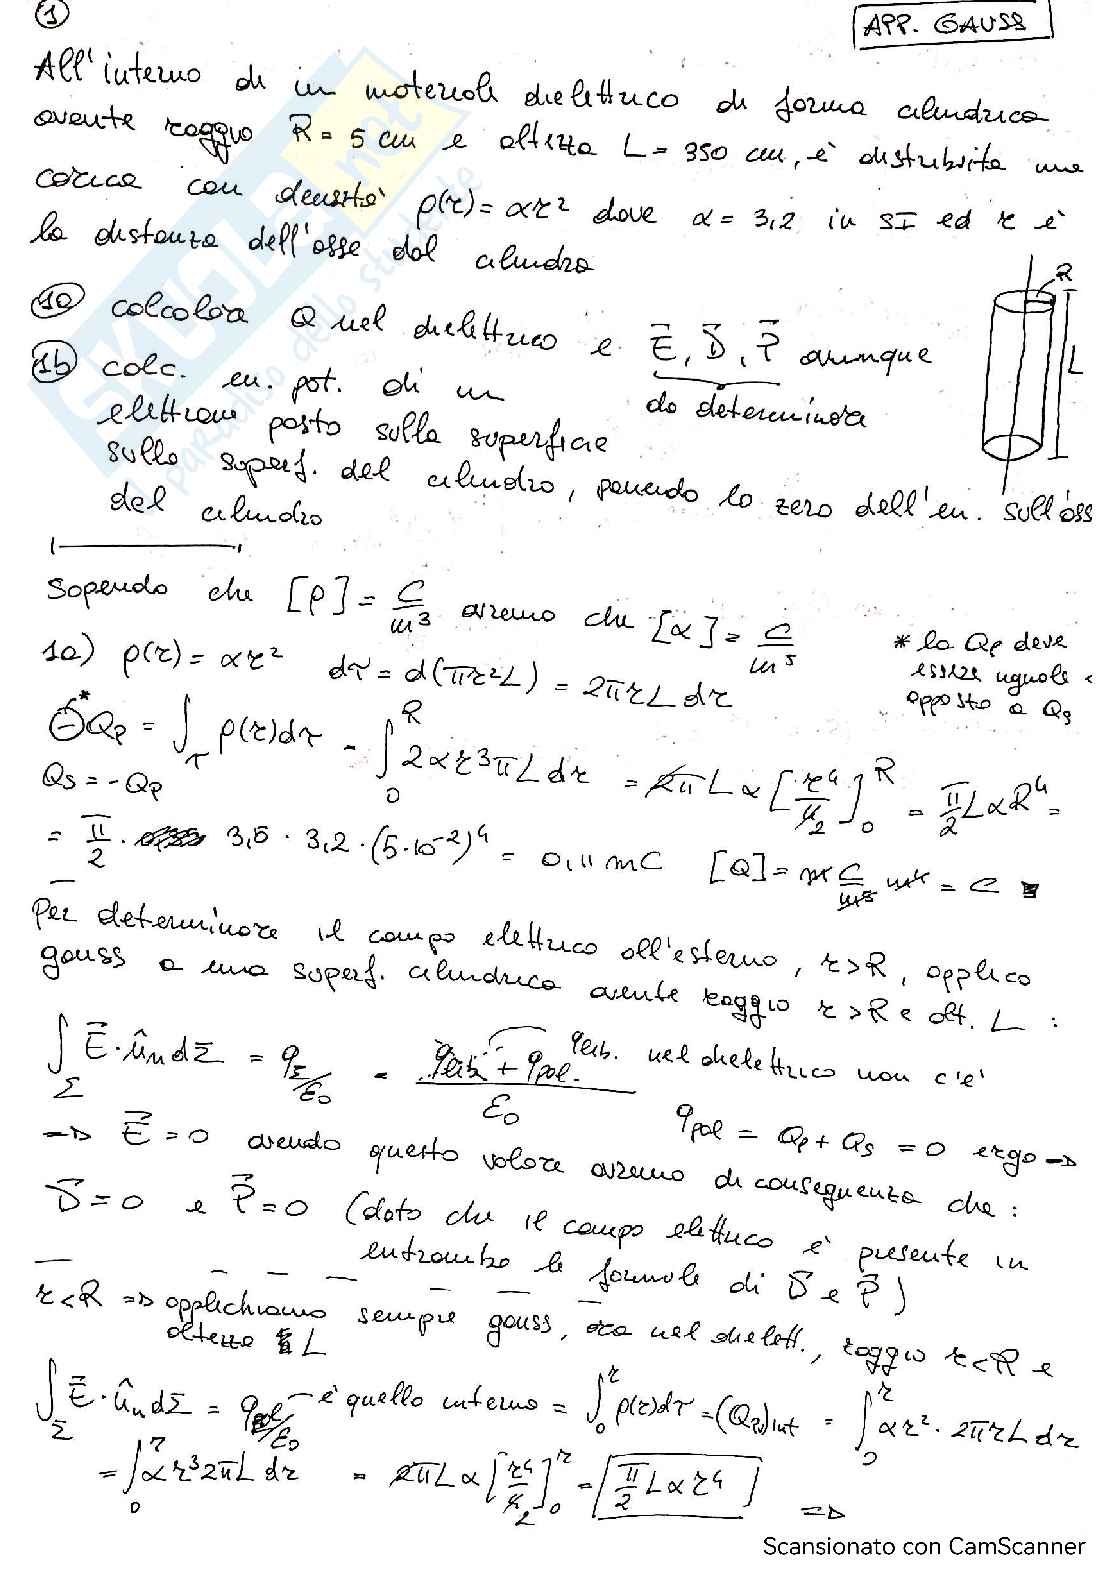 ①
APP. GAUSS
All'interno di un materiale dielettrico di forma cilindrica
avente raggio R = 5 cm e altezza L = 350 cm, è distribuita una
carica con densità ρ(r) = αr² dove α = 3,2 in SI ed r è
la distanza dell'asse dal cilindro
1a) calcolare Q nel dielettrico e E⃗, D⃗, P⃗ ovunque
da determinare
1b) calc. en. pot. di un
elettrone posto sulla superficie
sulla superf. del cilindro, ponendo lo zero dell'en. sull'ass
del cilindro
R
L
Sapendo che [ρ] = C/m³ avremo che [α] = C/m⁵
1a) ρ(r) = αr² dτ = d(πr²L) = 2πrL dr
* la Qp deve
essere uguale e
opposto a Qs
⊖* Qp = ∫_τ ρ(r)dτ = ∫₀ᴿ 2αr³πL dr = 2πLα [r⁴/4₂]₀ᴿ = π/2 LαR⁴ =
Qs = -Qp
= π/2 · 3,5 · 3,2 · (5·10⁻²)⁴ = 0,11 mC [Q] = m C/m⁵ m⁴ = C
Per determinare il campo elettrico all'esterno, r>R, applico
gauss a una superf. cilindrica avente raggio r>R e alt. L :
∫_Σ E⃗·û_n dΣ = q_Σ/ε₀ = (q_lib. + q_pol.)/ε₀ q_lib. nel dielettrico non c'è
q_pol = Qp + Qs = 0 ergo ⇒
⇒ E⃗ = 0 avendo questo valore avremo di conseguenza che :
D⃗ = 0 e P⃗ = 0 (dato che il campo elettrico è presente in
entrambe le formule di D⃗ e P⃗)
r<R ⇒ applichiamo sempre gauss, ora nel dielett., raggio r<R e
altezza L
∫_Σ E⃗·û_n dΣ = q_pol/ε₀ – è quello interno = ∫₀ʳ ρ(r)dτ = (Qp)int = ∫₀ʳ αr²·2πrL dr
= ∫₀ʳ αr³2πL dr = 2πLα [r⁴/4₂]₀ʳ = π/2 Lαr⁴ ⇒
SKUOLA.net
paradiso dello studente
Scansionato con CamScanner